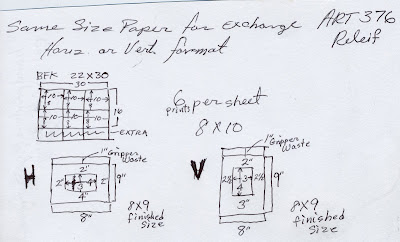 Same Size Paper for Exchange ART 376
Horiz. or Vert. format Releif
BFK 22X30
30
10 10 10
8 8 8
16
10 10 10
8 8 8
EXTRA
6 per sheet
prints
8 X 10
H
1" Gripper Waste
2"
2" 4 4"
3
4"
9"
8"
8X9
finished
Size
V
1" Gripper
Waste
2"
2½ 3 2½
4
3"
9"
8"
8X9
finished
Size